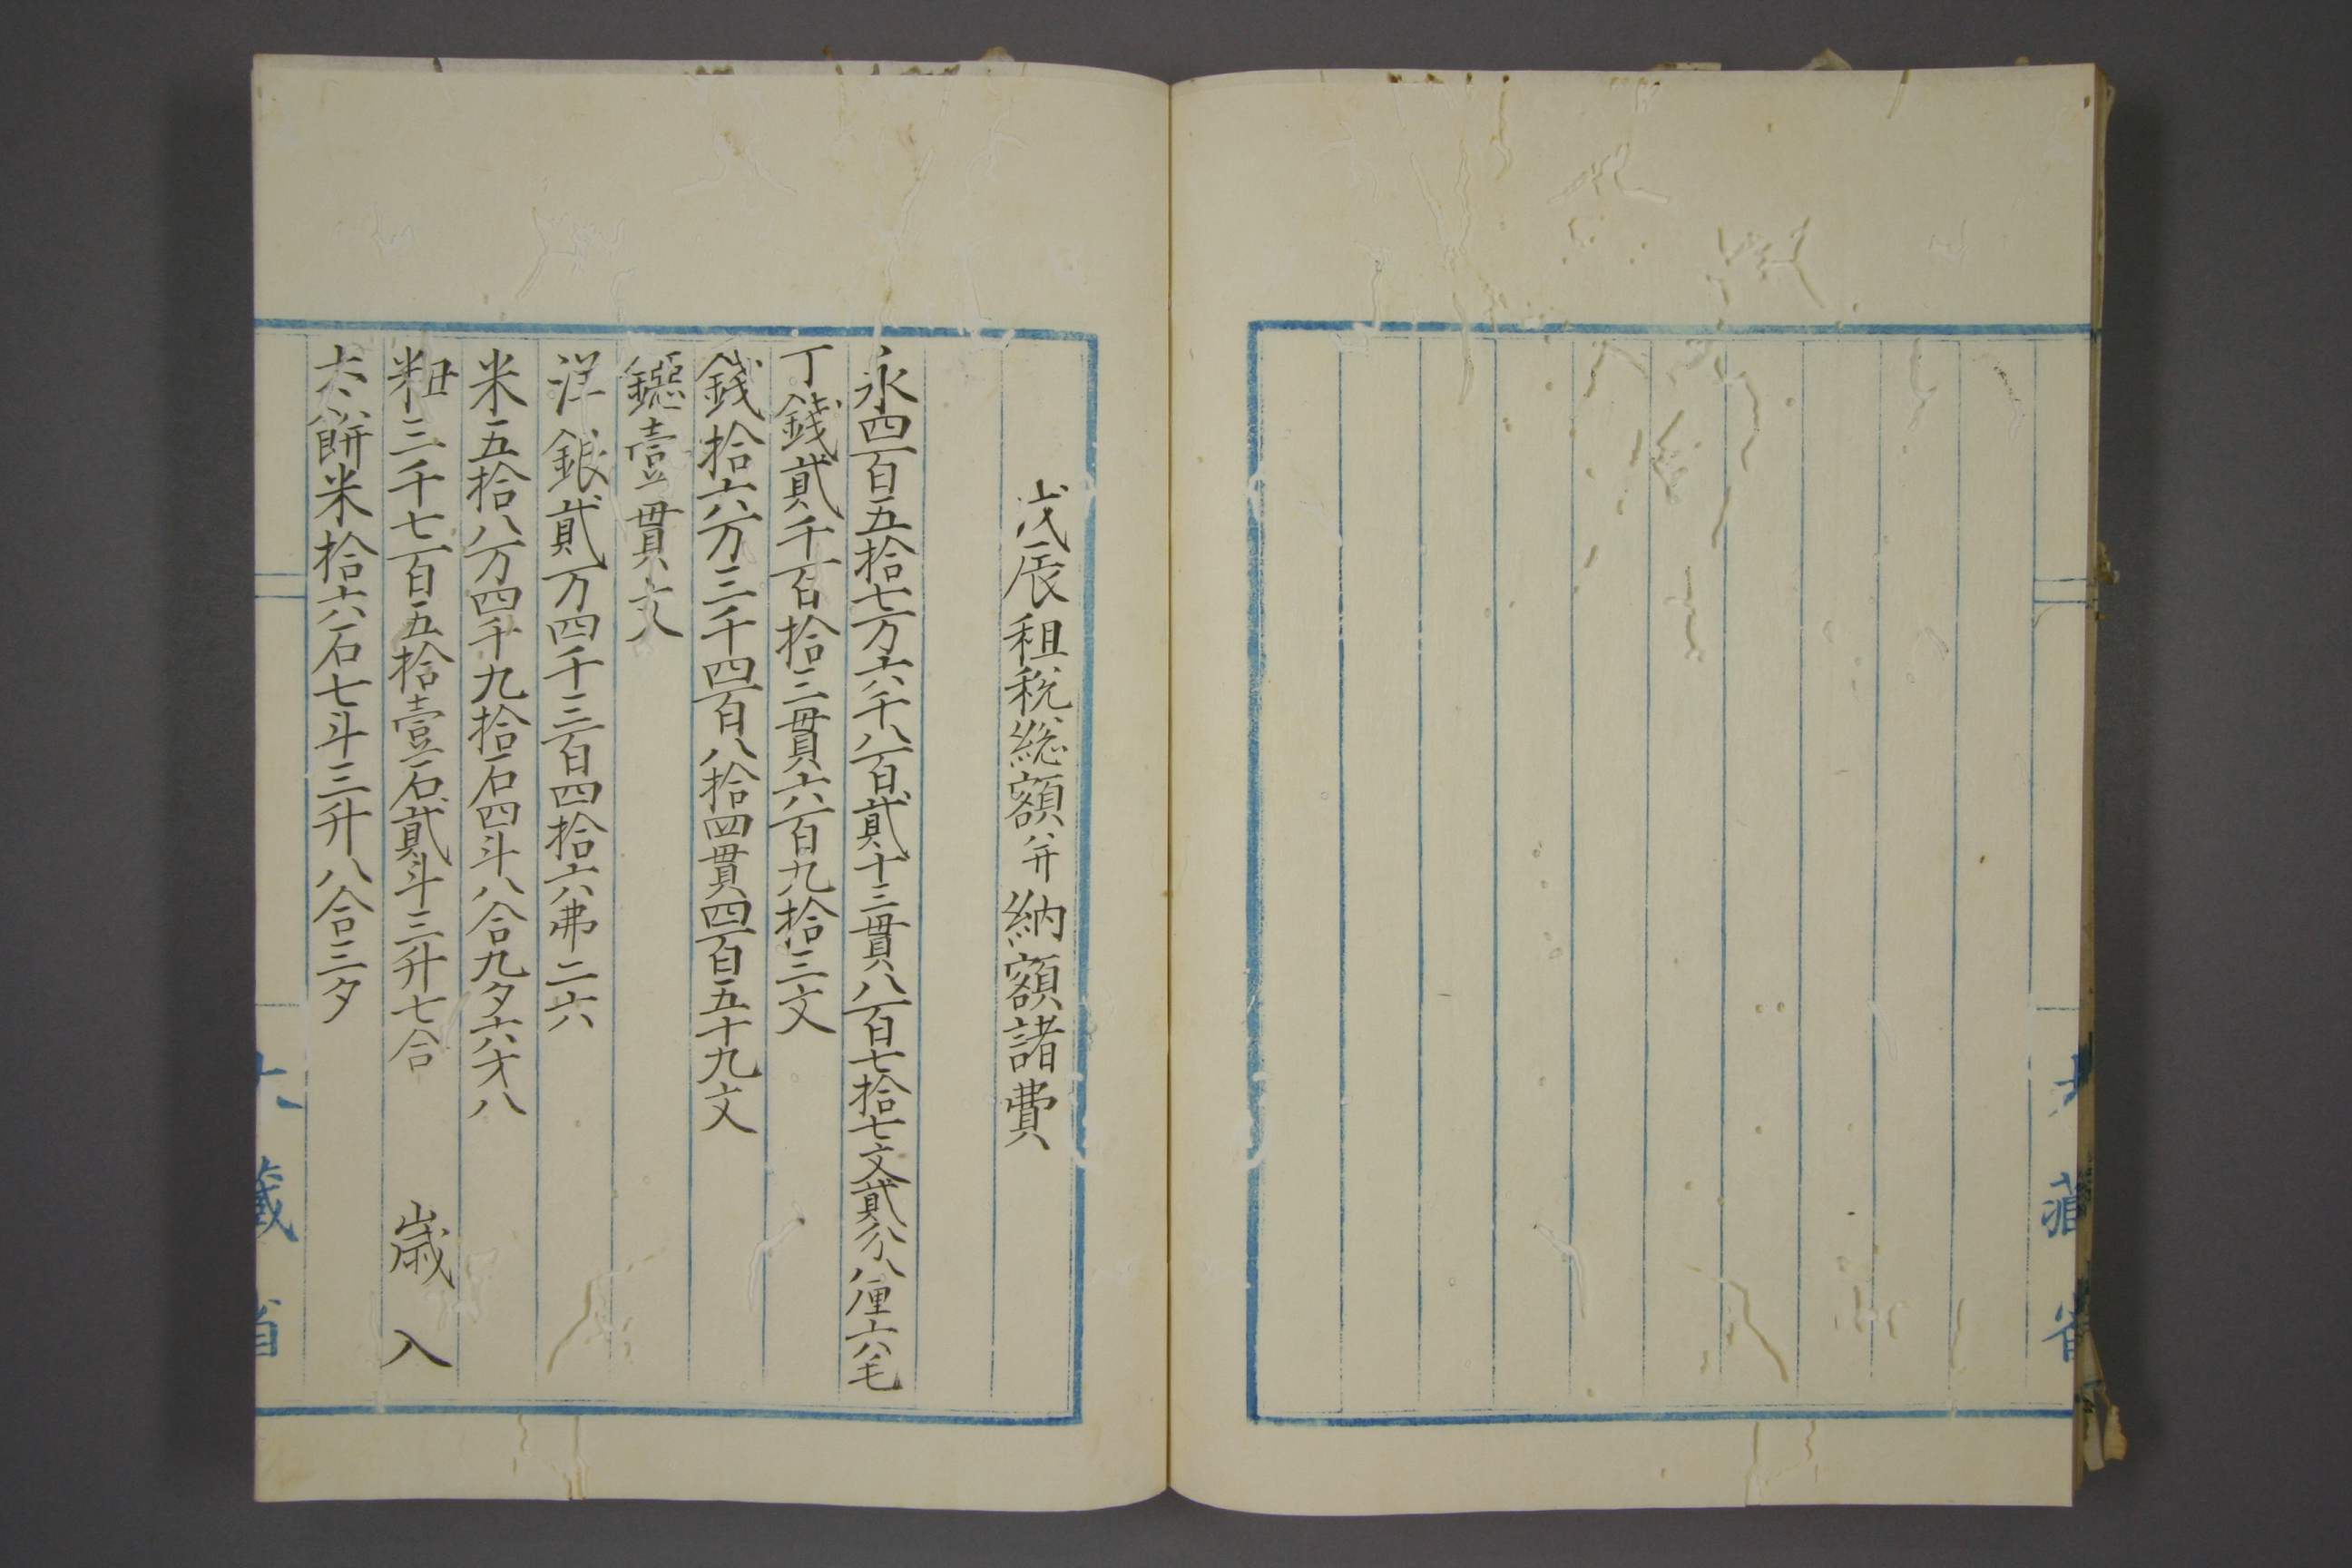 大藏省
戊辰租税総額并納額諸費
永四百五拾七万六千八百貳十三貫八百七拾七文貳分八厘六毛
丁錢貳千百拾三貫六百九拾三文
錢拾六万三千四百八拾四貫四百五十九文
鐚壹貫文
洋銀貳万四千三百四拾六弗二六
米五拾八万四千九拾石四斗八合九夕六才八
粗三千七百五拾壹石貳斗三升七合
歳入
太餅米拾六石七斗三升八合三夕
大藏省